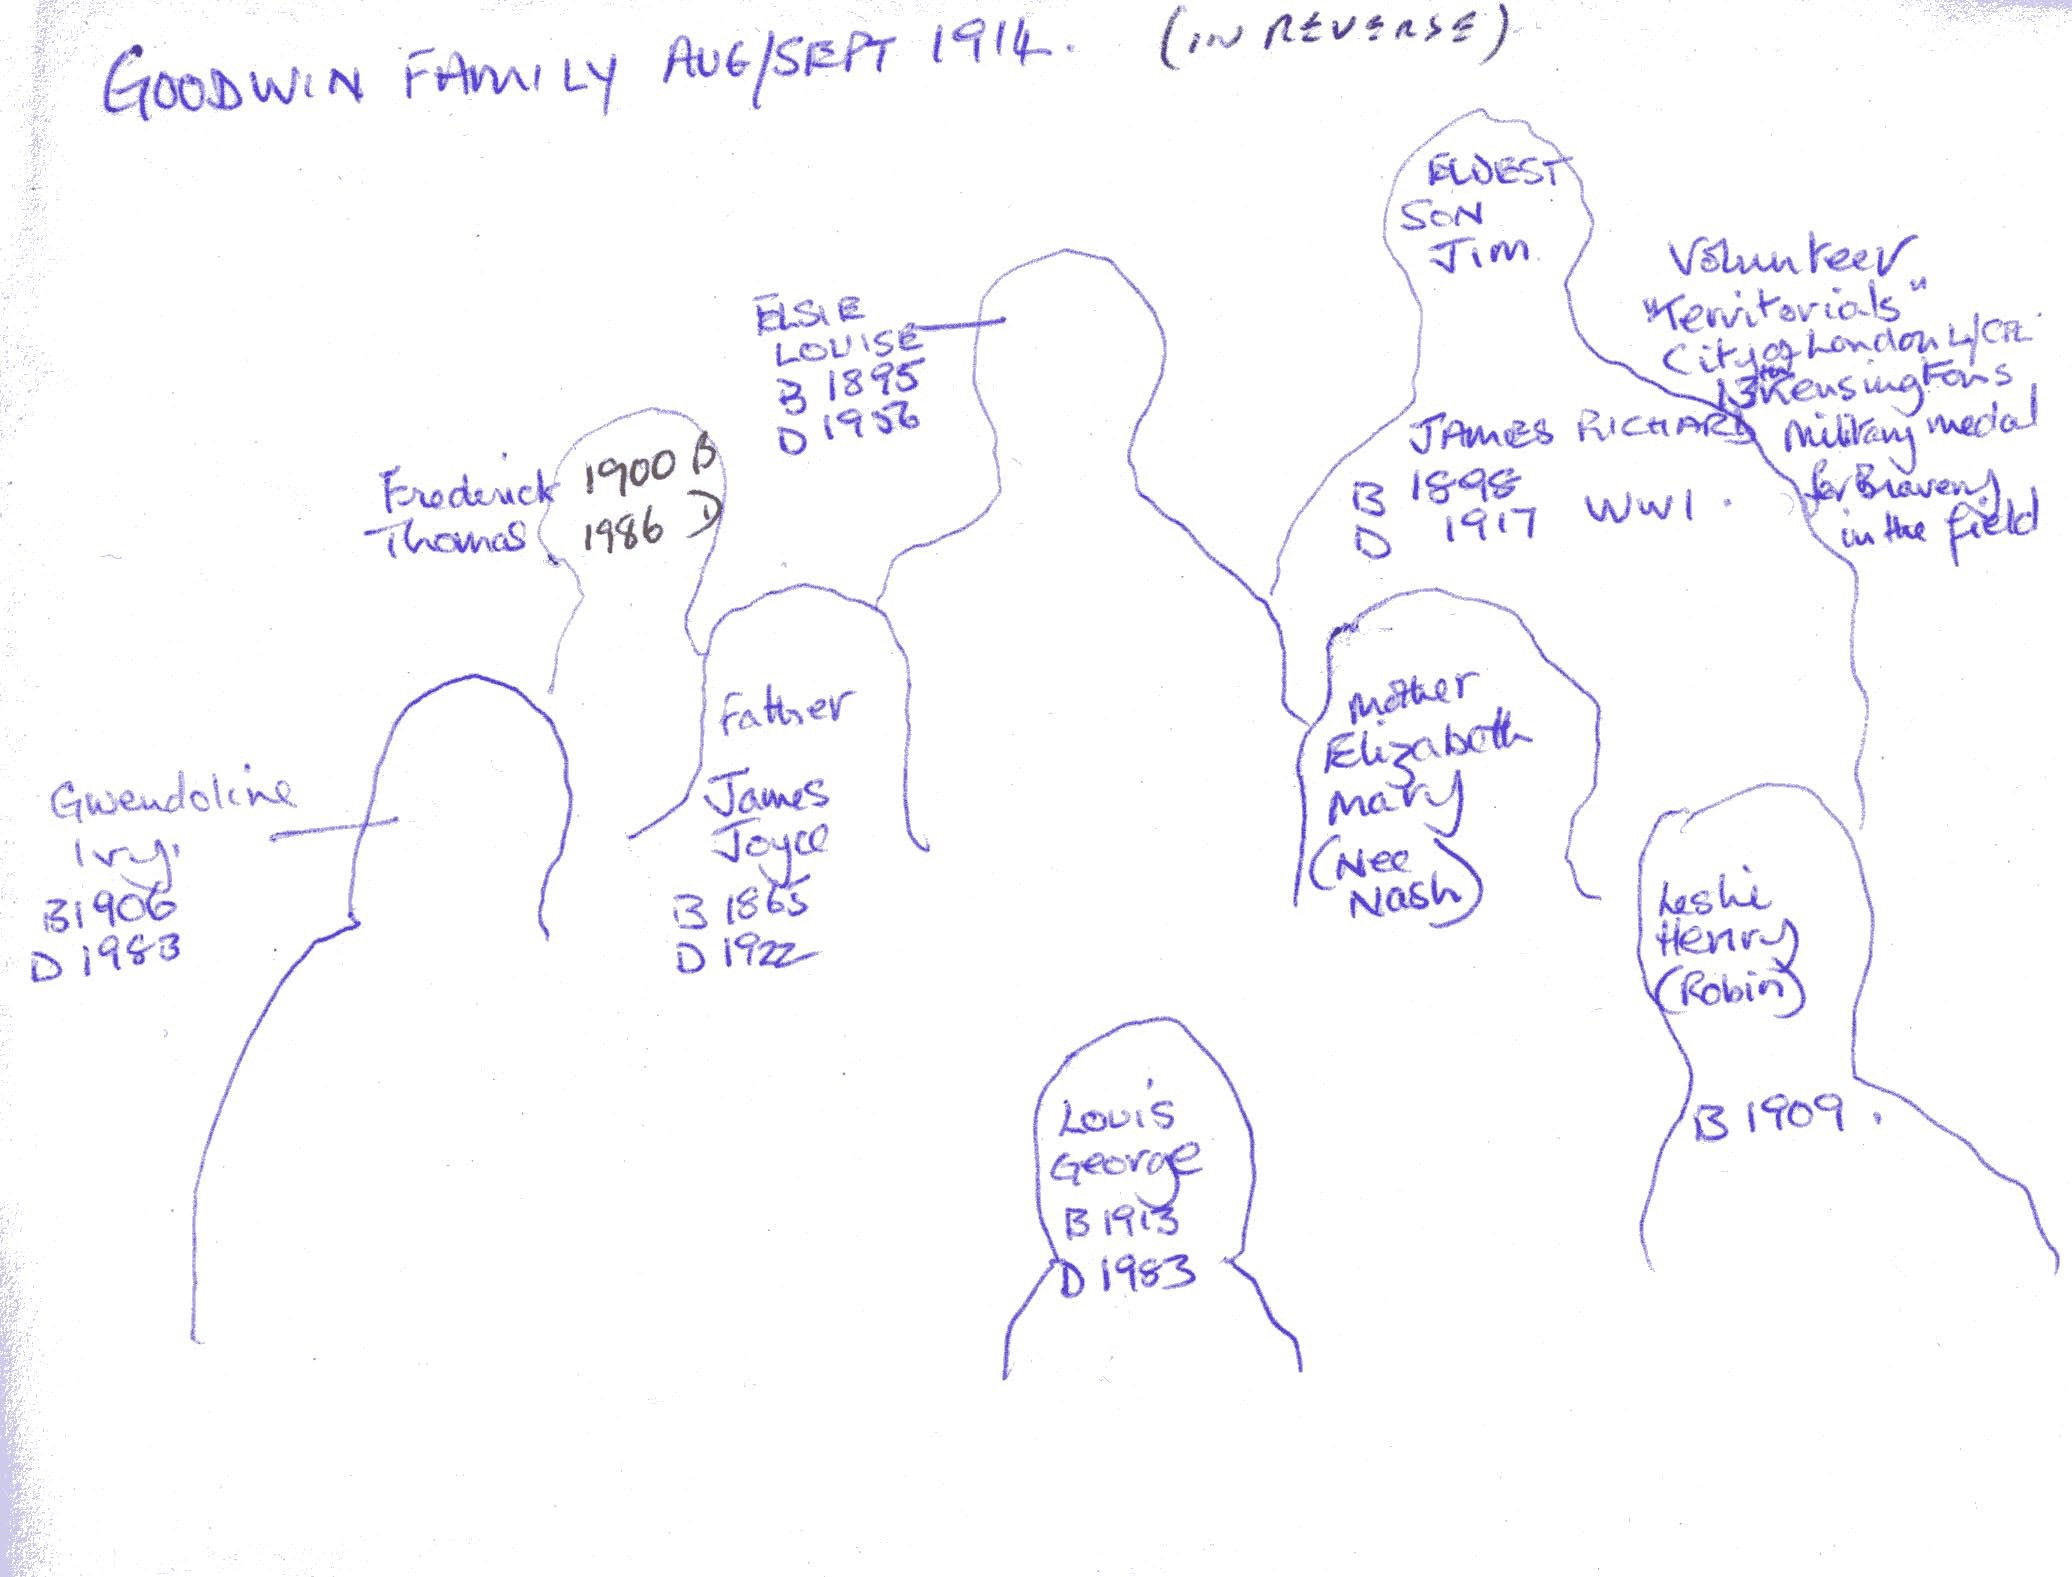 GOODWIN FAMILY AUG/SEPT 1914. (IN REVERSE)
ELDEST
SON
Jim
Volunteer
"Territorials"
City of London
13th Kensingtons
Military medal
for Bravery
in the field
JAMES RICHARD
B 1898
D 1917 WWI.
ELSIE
LOUISE
B 1895
D 1956
Frederick
Thomas
1900 B
1986 D
Father
James
Joyce
B 1865
D 1922
Mother
Elizabeth
Mary
(Nee
Nash)
Gwendoline
Ivy.
B 1906
D 1983
Leslie
Henry
(Robin)
B 1909.
Louis
George
B 1913
D 1983